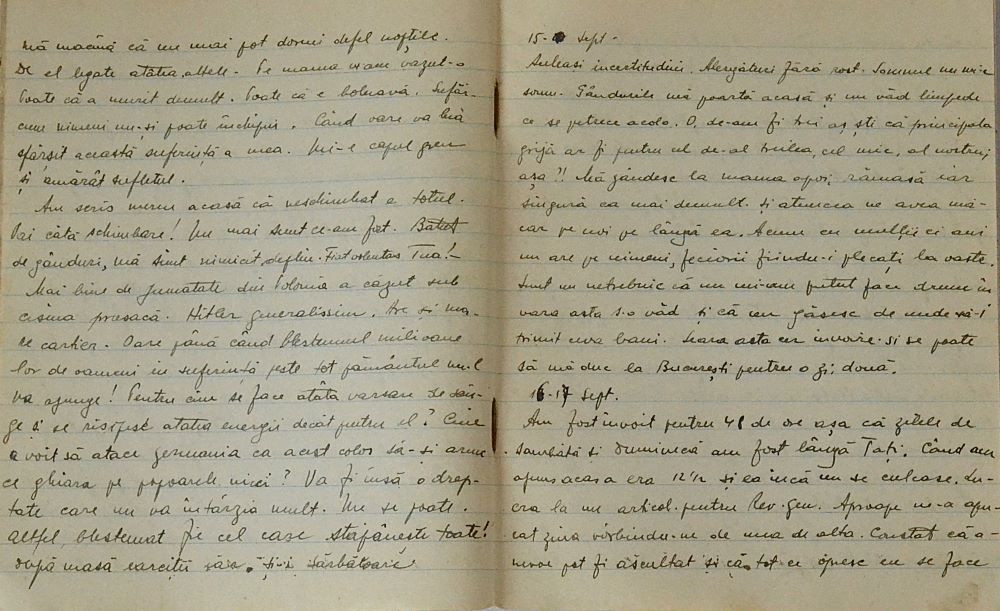 mă macină că nu mai pot dormi defel nopțile.
De el legate atâtea altele. Pe mama n-am văzut-o
Poate că a murit demult. Poate că e bolnavă. Sufăr
cum nimeni nu-și poate închipui. Când oare va lua
sfârșit această suferință a mea. Mi-e capul greu
și amărât sufletul.
Am scris mereu acasă că neschimbat e totul.
Vai câtă schimbare! Nu mai sunt ce-am fost. Bătut
de gânduri, mă simt nimicit deplin. Fiat voluntas Tua!-
Mai bine de jumătate din Polonia a căzut sub
cisma prusacă. Hitler generalissim. Are și ma-
re cartier. Oare până când blestemul milioane
lor de oameni în suferință peste tot pământul nu-l
va ajunge! Pentru cine se face atâta vărsare de sân-
ge și se risipesc atâtea energii decât pentru el? Cine
a voit să atace germania ca acest colos să-și arun
ce ghiara pe popoarele mici? Va fi însă o drep-
tate care nu va întârzia mult. Nu se poate.
Altfel, blestemat fie cel care stăpânește toate!
După masă exerciții sără. sărbătoare
15- Sept.
Aceleași incertitudini. Alergături fără rost. Somnul nu mi-e
somn. Gândurile mă poartă acasă și nu văd limpede
ce se petrece acolo. O, de-am fi trei aș ști că principala
grijă ar fi pentru cel de-al treilea, cel mic, al nostru,
așa?! Mă gândesc la mama apoi, rămasă iar
singură ca mai demult. Și atuncea ne avea mă-
car pe noi pe lângă ea. Acum cu mulții ei ani
nu are pe nimeni, feciorii fiindu-i plecați la oaste.
Sunt un netrebnic că nu mi-am putut face drum în
vara asta s-o văd și că nu găsesc de unde să-i
trimit ceva bani. Seara asta cer învoire și se poate
să mă duc la București pentru o zi, două.
16-17 Sept.
Am fost învoit pentru 48 de ore așa că zilele de
sambătă și Duminecă am fost lângă Tați. Când am
ajuns acasa era 12½ și ea încă nu se culcase. Lu-
cra la un articol pentru Rev. Gen. Aproape ne-a apu-
cat ziua vorbindu-ne de una de alta. Constat că a-
nevoe pot fi ascultat și că tot ce opresc eu se face